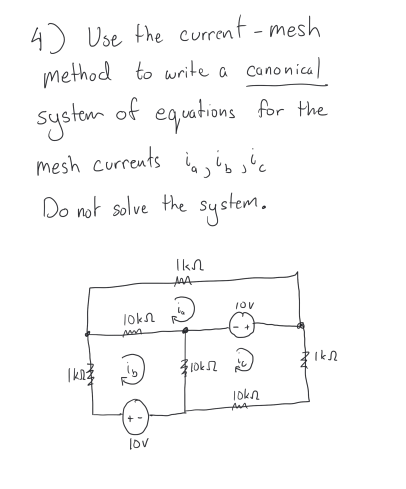 4) Use the current-mesh
method to write a canonical
system of equations for the
mesh currents ia, ib, ic
Do not solve the system.
1kΩ
ia
10V
10kΩ
- +
1kΩ
ib
10kΩ
ic
1kΩ
10kΩ
+ -
10V